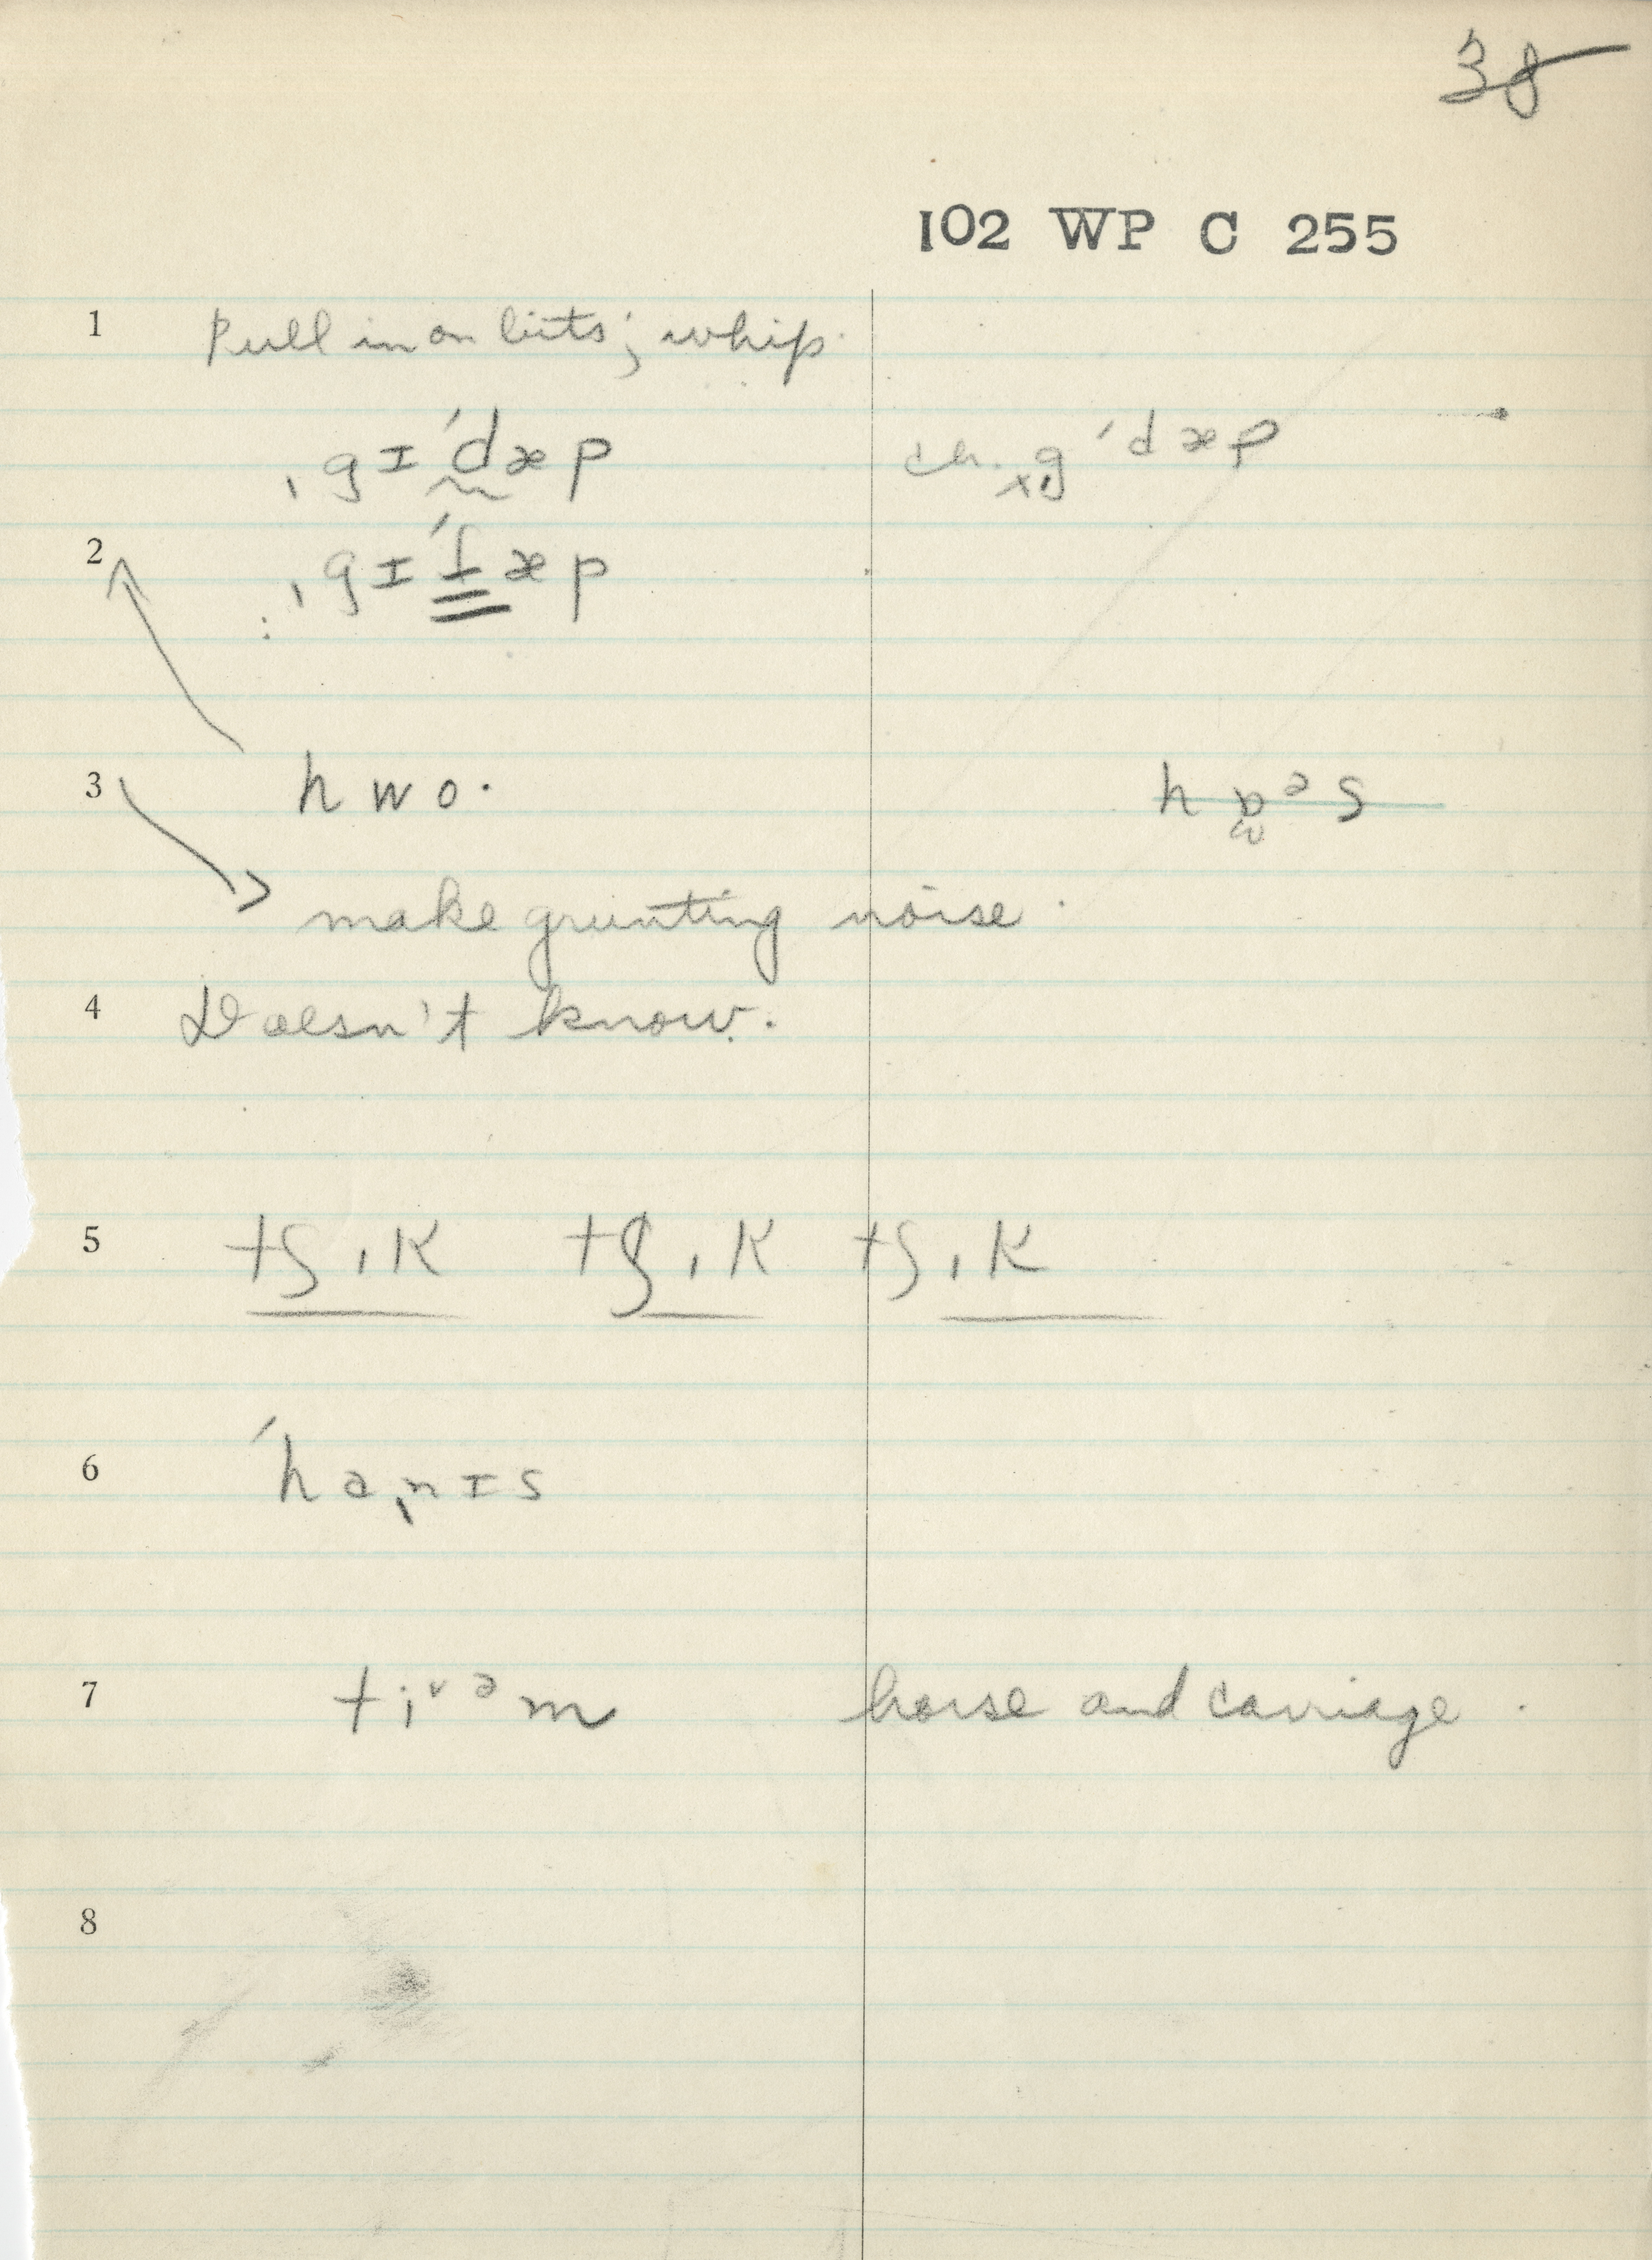 38
102 WP C 255
1 Pull in on bits; whip.
ˌgɪˈdæp ch. ˌg ˈdæp
2 ˌgɪˈt̬æp
3 hwo· hɒᵊs
make grunting noise.
4 Doesn't know.
5 tʃɩk tʃɩk tʃɩk
6 ˈhaˌnɪs
7 tiᵛᵊm horse and carriage.
8